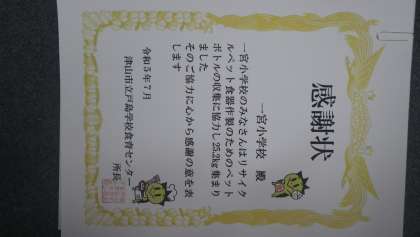 感謝状
一宮小学校 殿
一宮小学校のみなさんはリサイク
ルペット食器作製のためのペット
ボトルの収集に協力し25.2kg集まり
ました
そのご協力に心から感謝の意を表
します
令和5年7月
津山市立戸島学校食育センター
所長